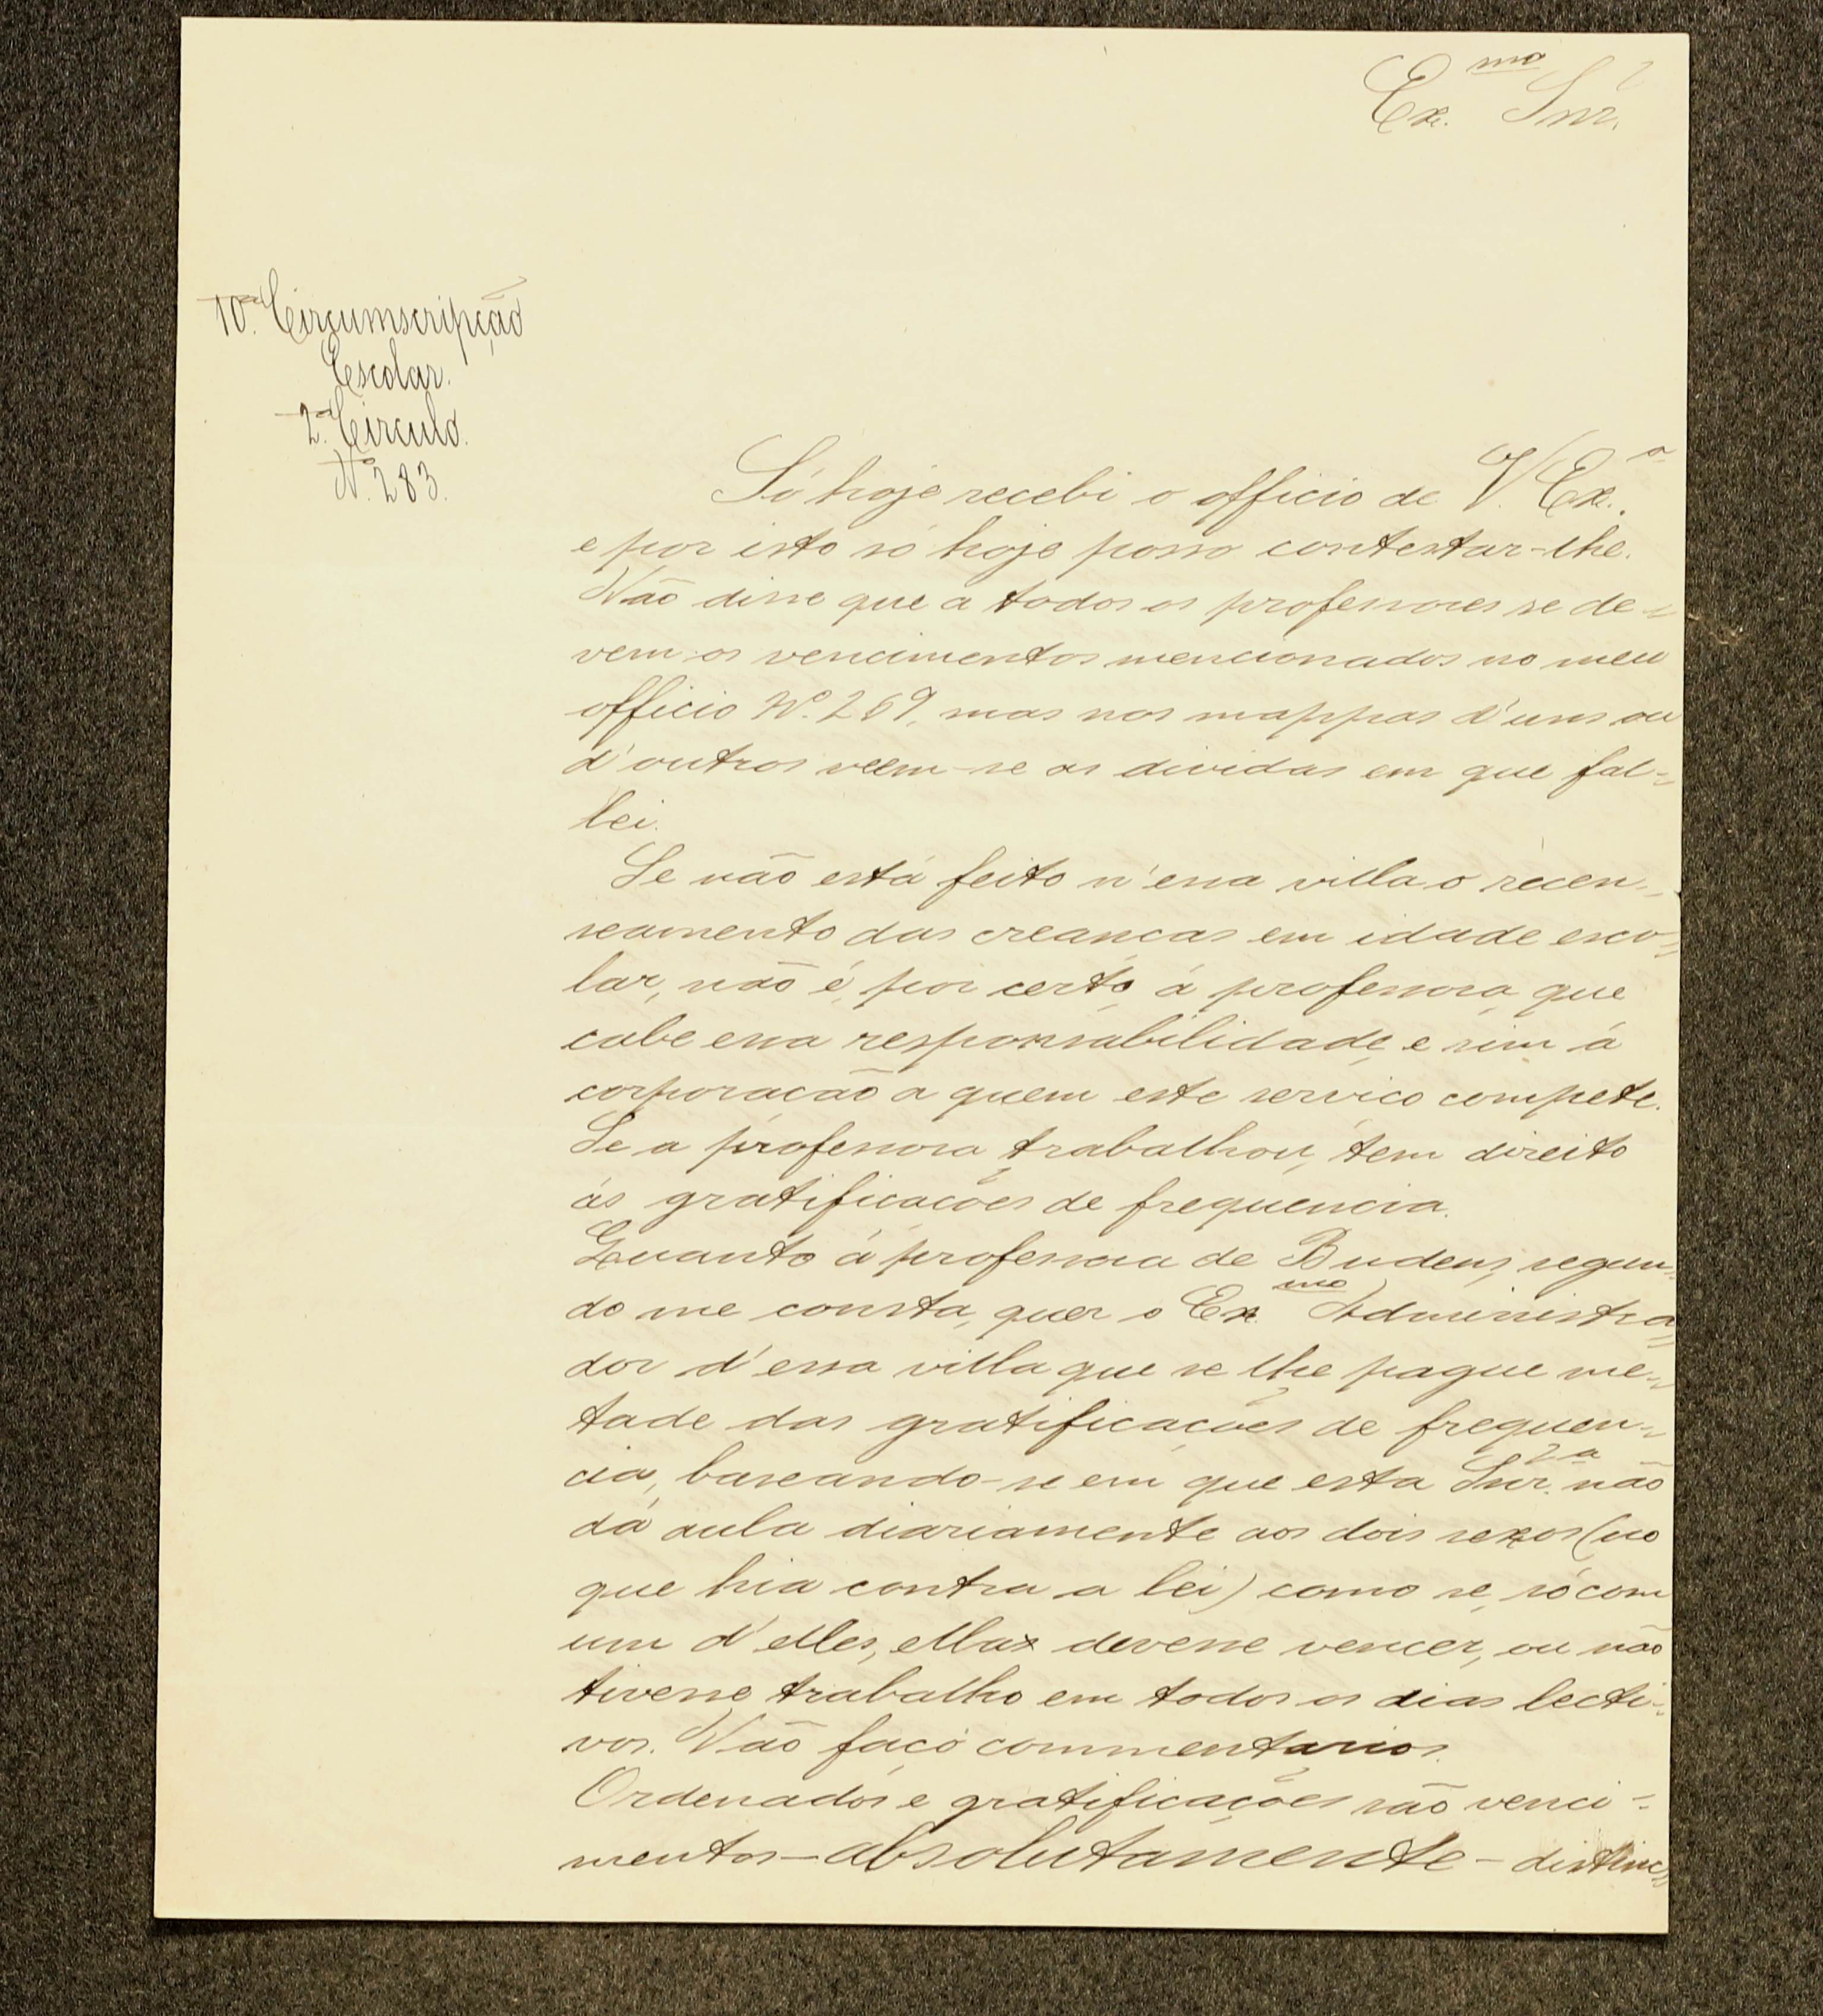 Ex.mo Snr.
10.ª Circumscripção
Escolar.
2.º Circulo.
N.º 283.
Só hoje recebi o officio de V. Ex.ª
e por isto só hoje posso contestar-lhe.
Não disse que a todos os professores se de-
vem os vencimentos mencionados no meu
officio N.º 269, mas nos mappas d'uns ou
d'outros vêem-se as dividas em que fal-
lei.
Se não está feito n'essa villa o recen-
seamento das creanças em idade esco-
lar, não é, por certo, á professora, que
cabe essa responsabilidade, e sim á
corporação a quem este serviço compete.
Se a professora trabalhou, tem direito
ás gratificações de frequencia.
Quanto á professora de Budens, segun-
do me consta, quer o Ex.mo Administra-
dor d'essa villa que se lhe pague me-
tade das gratificações de frequen-
cia, baseando-se em que esta Snr.ª não
dá aula diariamente aos dois sexos (no
que hia contra a lei) como se, só com
um d'elles, ellas devesse vencer, ou não
tivesse trabalho em todos os dias lecti-
vos. Não faço commentarios.
Ordenados e gratificações são venci-
mentos - absolutamente - distinc-